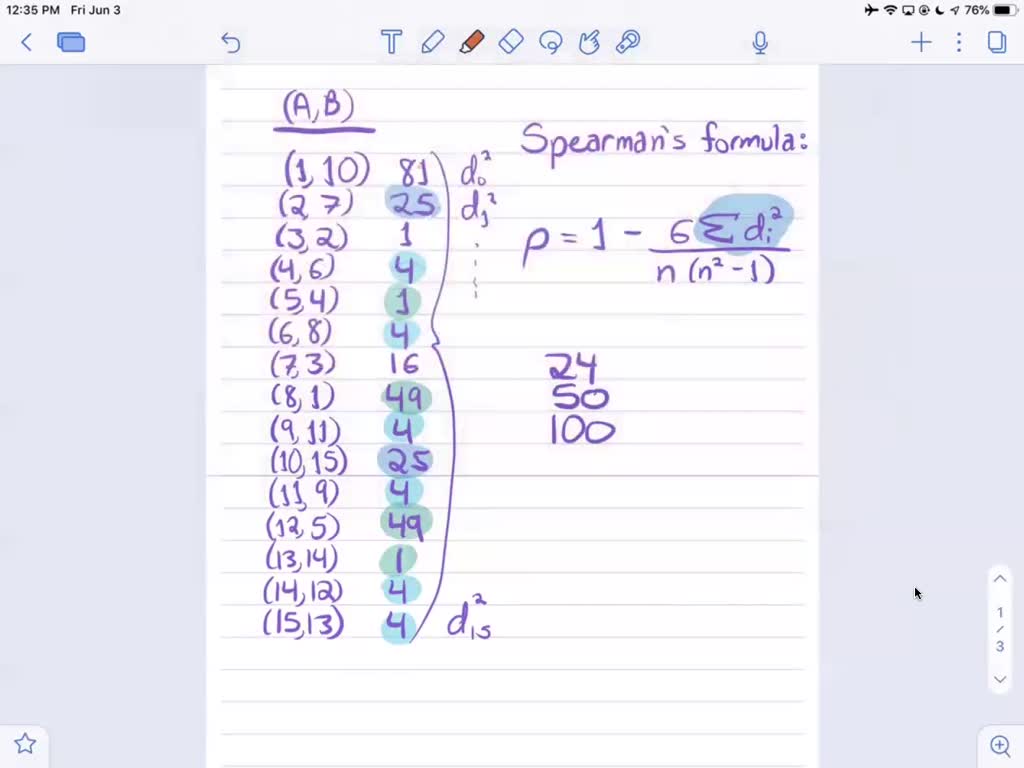 12:35 PM Fri Jun 3
76%
(A, B)
Spearman's formula:
(1, 10) 81 d₀²
(2, 7) 25 d₁²
(3, 2) 1
ρ = 1 - 6 Σ dᵢ² / n (n² - 1)
(4, 6) 4
(5, 4) 1
(6, 8) 4
(7, 3) 16
24
(8, 1) 49
50
(9, 11) 4
100
(10, 15) 25
(11, 9) 4
(12, 5) 49
(13, 14) 1
(14, 12) 4
(15, 13) 4 d₁₅²
1
/
3
T